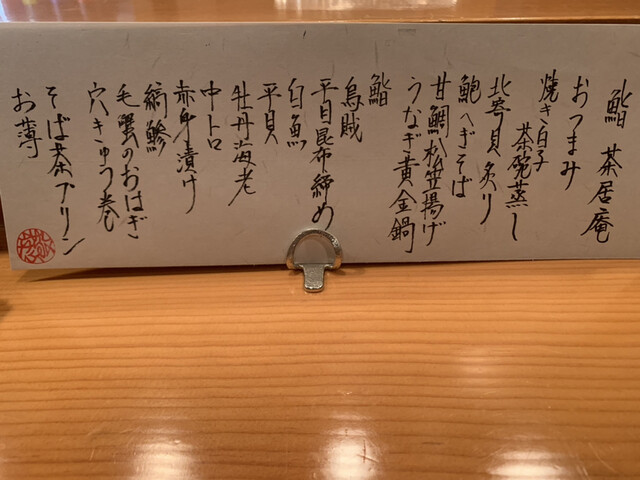 鮨 茶居庵
おつまみ
焼き白子
茶碗蒸し
北寄貝炙り
鮑へぎそば
甘鯛松笠揚げ
うなぎ黄金鍋
鮨
烏賊
平目昆布締め
白魚
平貝
牡丹海老
中トロ
赤身漬け
縞鯵
毛蟹のおはぎ
穴きゅう巻
そば茶プリン
お薄